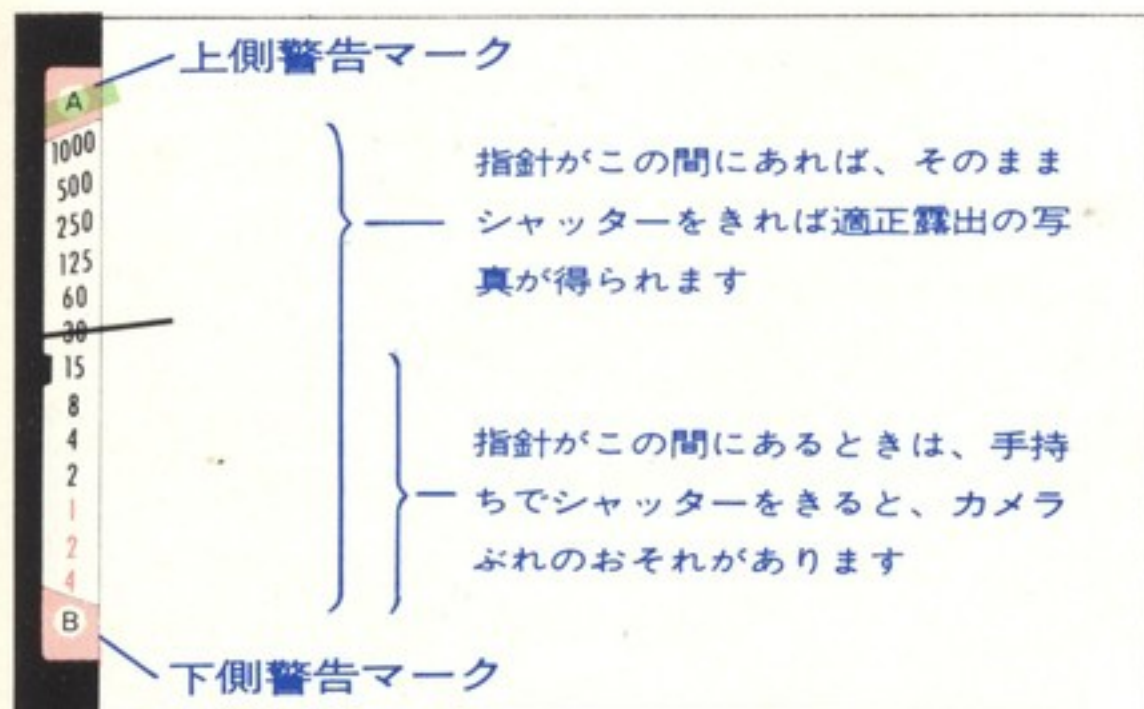 上側警告マーク
A
1000
500
250
125
60
30
15
8
4
2
1
2
4
B
指針がこの間にあれば、そのまま
シャッターをきれば適正露出の写
真が得られます
指針がこの間にあるときは、手持
ちでシャッターをきると、カメラ
ぶれのおそれがあります
下側警告マーク